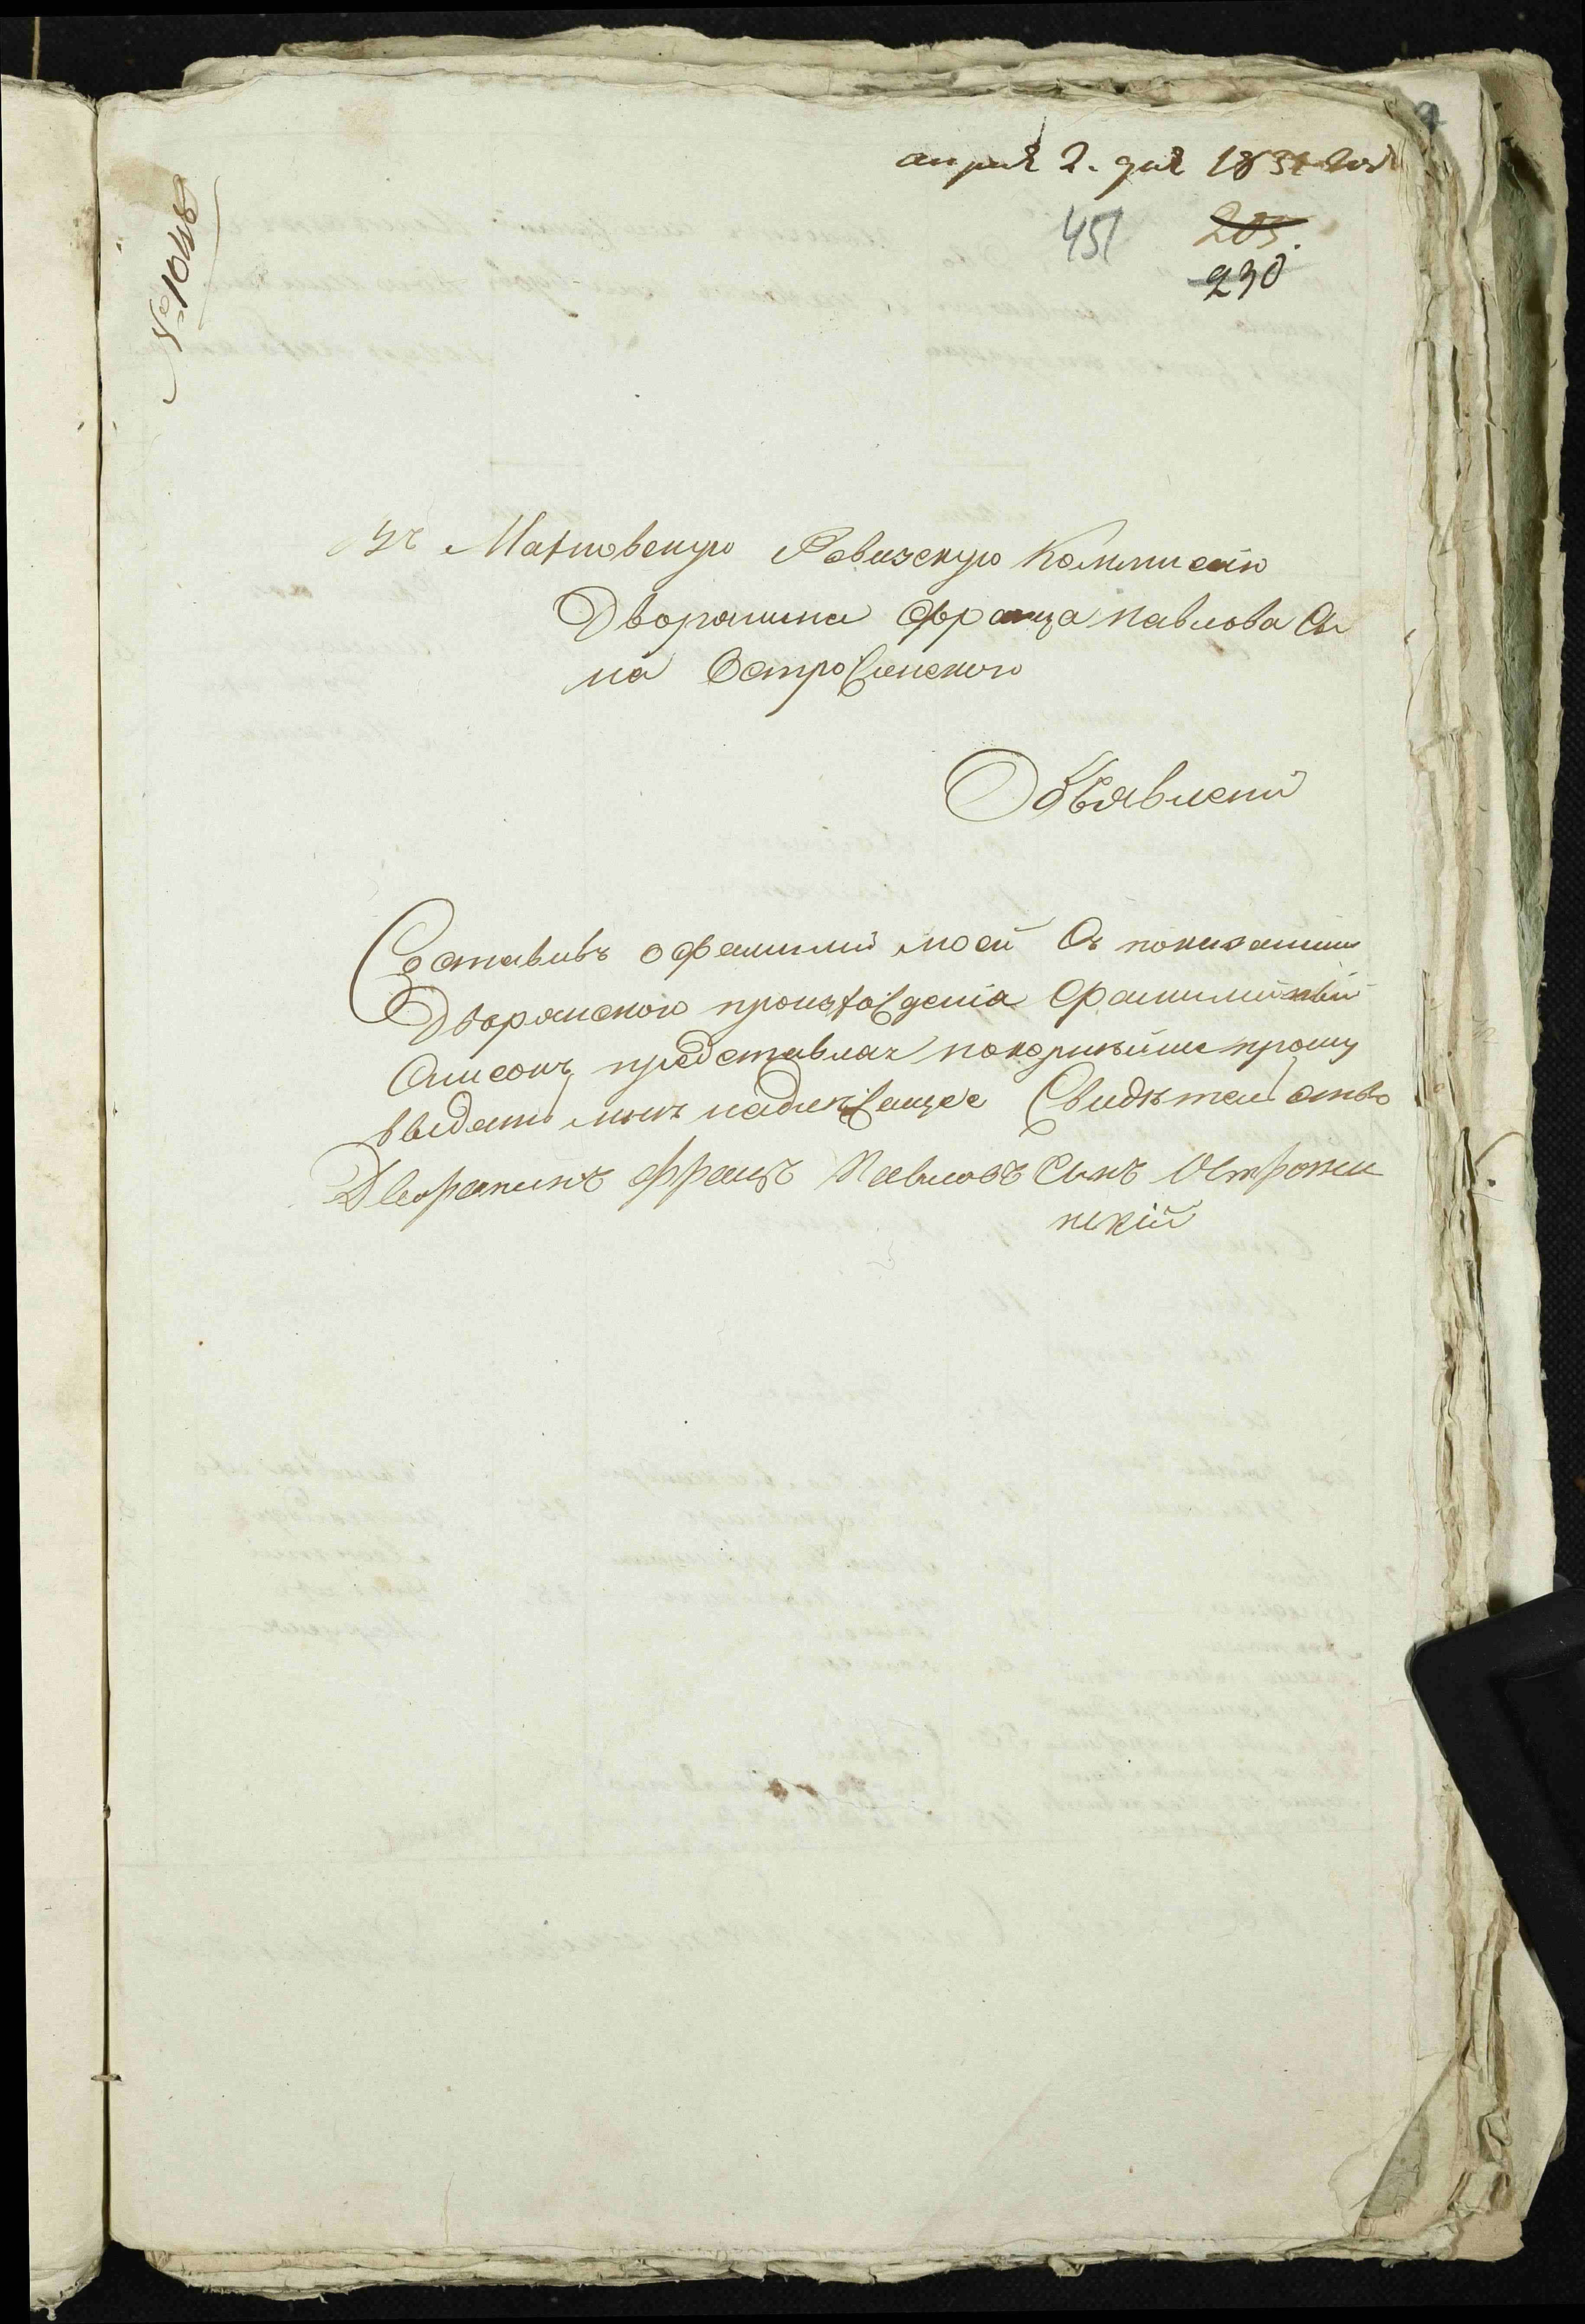 апреля 2. дня 1834 года
№ 1048
451
205.
230
Въ Махновскую Ревизскую Коммисию
Дворянина Франца Павлова Сы
на Острожинского
Объявлении
Составивъ о фамилии моей Съ показанием
Дворянского происхождения Фамилийный
Списокъ представляя покорнейше прошу
выдать мнѣ надлежащее Свидѣтельство
Дворянинъ Францъ Павловъ Сынъ Острожи
нский